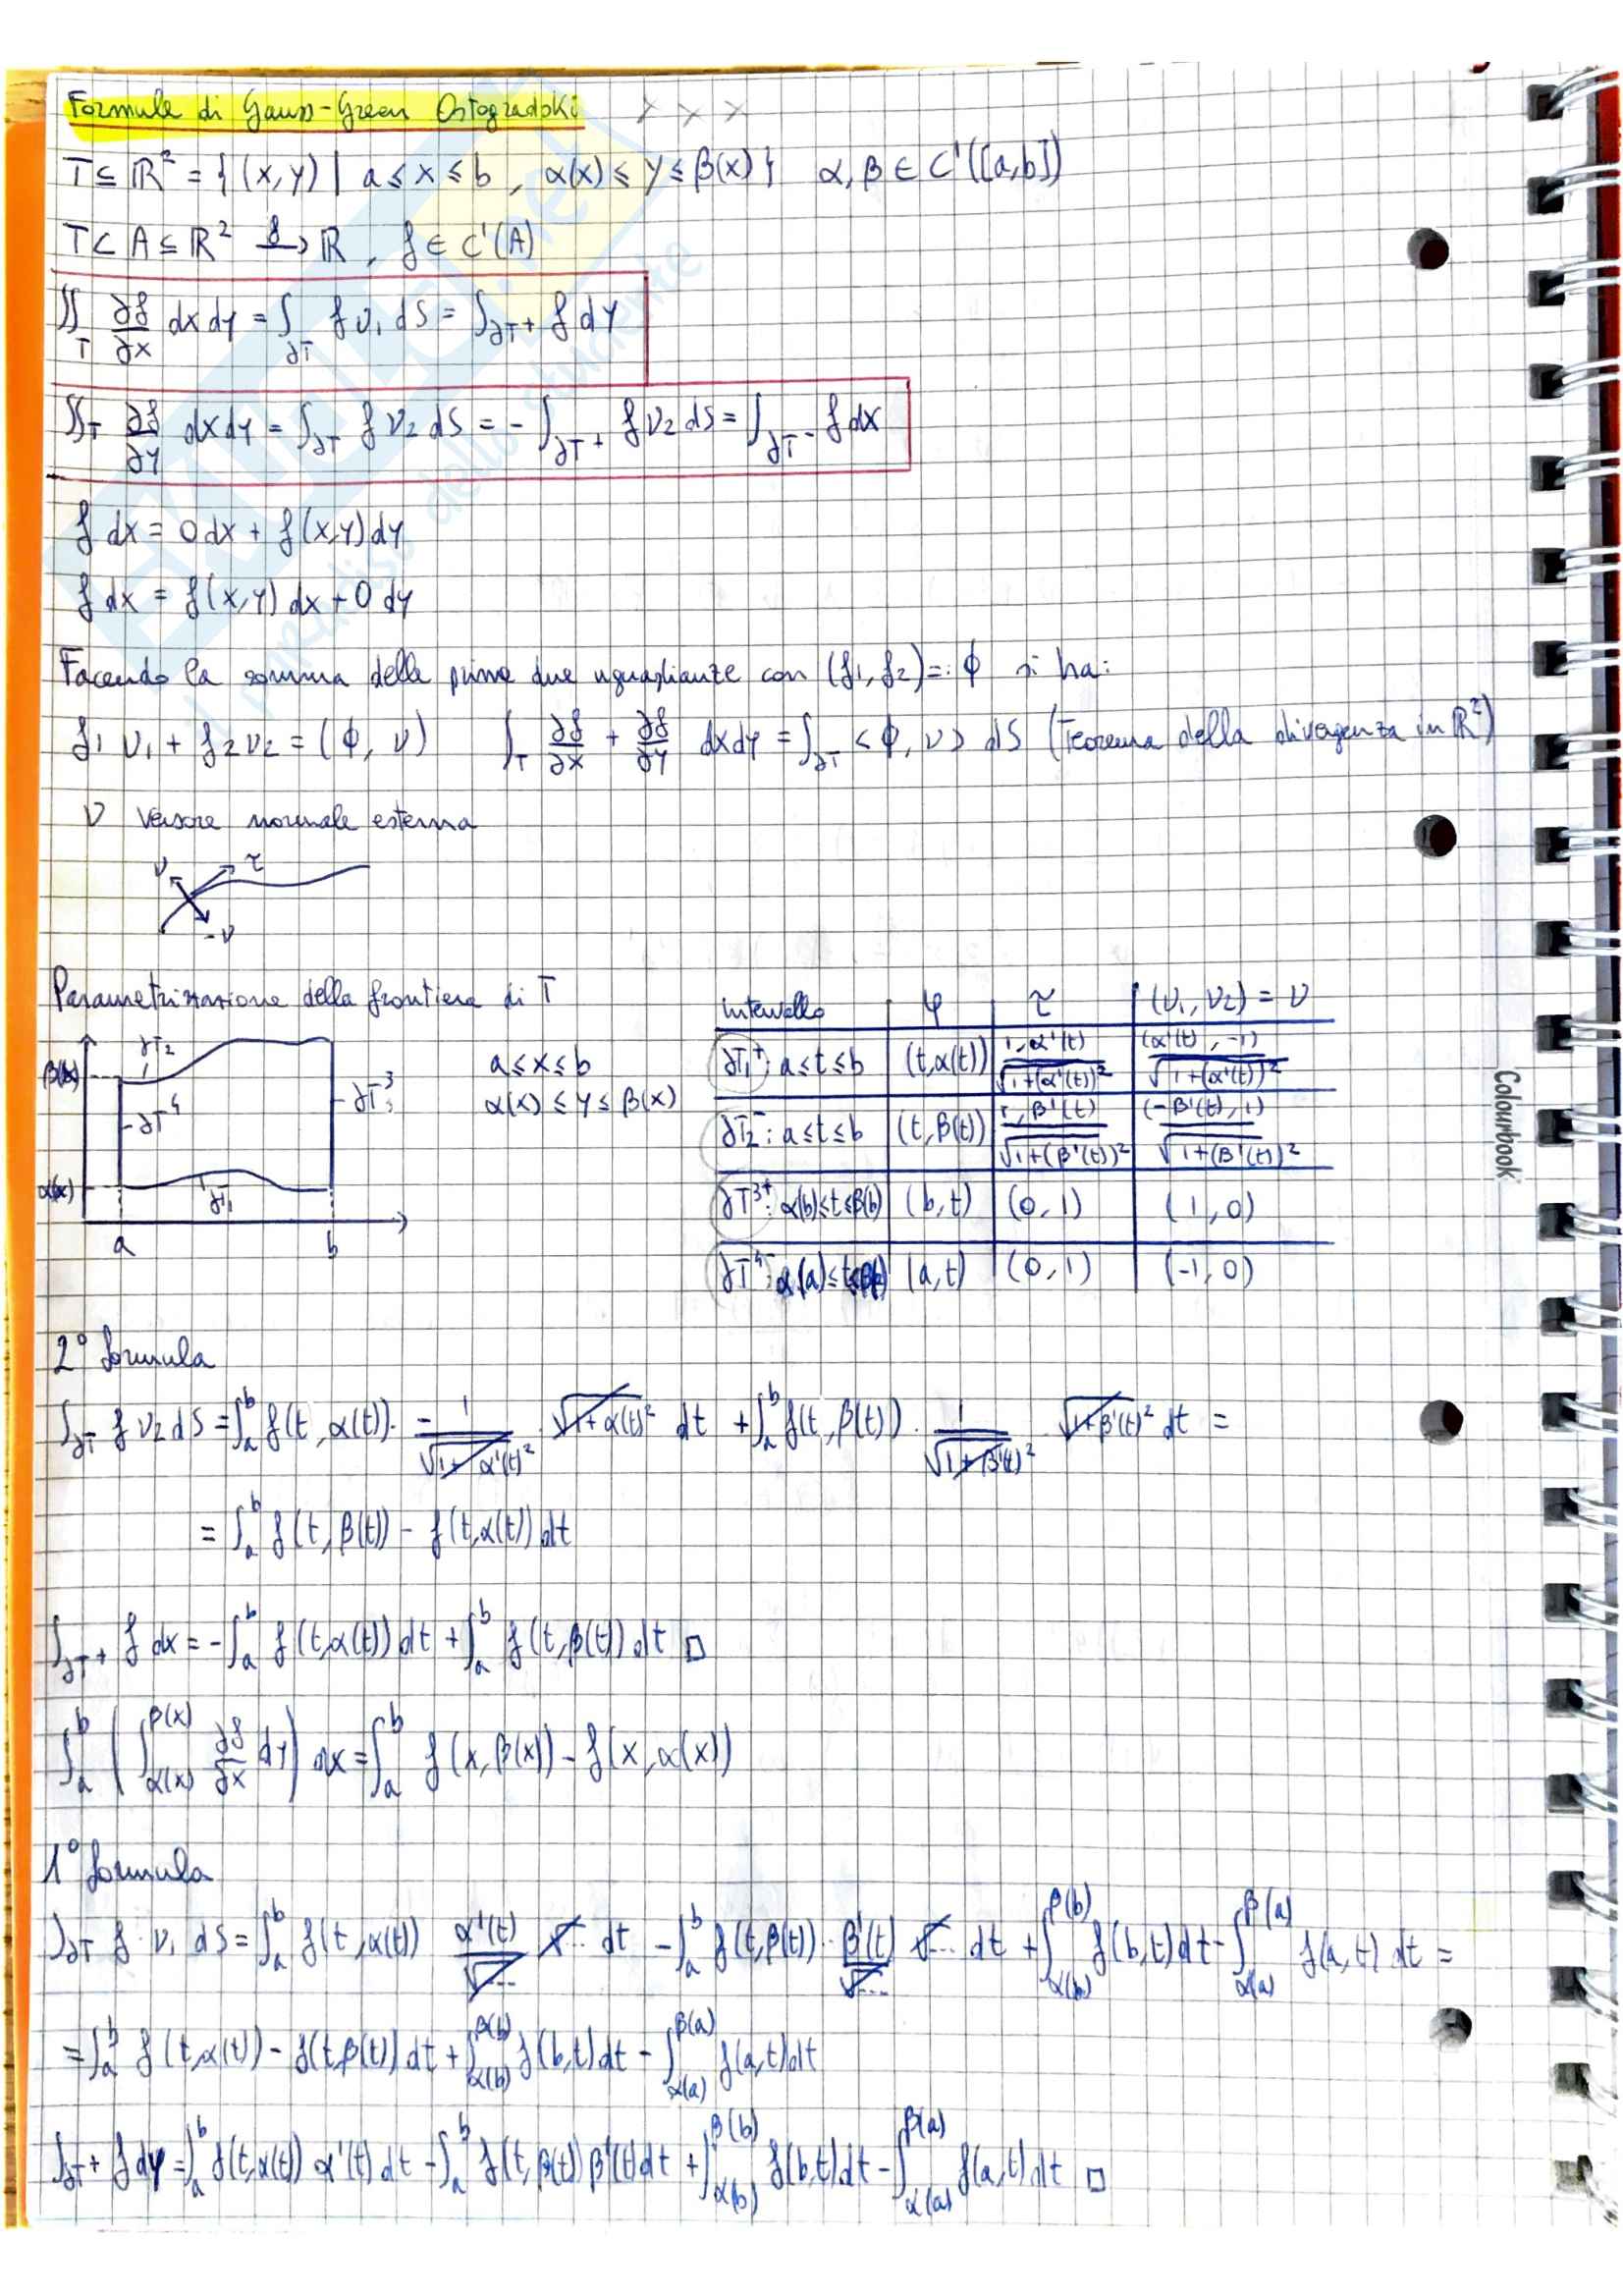 Formule di Gauss-Green Ostogradski x x x
T ⊆ ℝ² = {(x,y) | a ≤ x ≤ b, α(x) ≤ y ≤ β(x)} α, β ∈ C'([a,b])
T ⊂ A ⊆ ℝ² →f ℝ, f ∈ C'(A)
∬_T ∂f/∂x dx dy = ∫_∂T f ν₁ dS = ∫_∂T+ f dy
∬_T ∂f/∂y dx dy = ∫_∂T f ν₂ dS = - ∫_∂T+ f ν₂ dS = ∫_∂T- f dx
f dx = 0 dx + f(x,y) dy
f dx = f(x,y) dx + 0 dy
Facendo la somma delle prime due uguaglianze con (f₁, f₂) =: ϕ si ha:
f₁ ν₁ + f₂ ν₂ = (ϕ, ν) ∫_T ∂f/∂x + ∂f/∂y dx dy = ∫_∂T <ϕ, ν> dS (Teorema della divergenza in ℝ²)
ν versore normale esterna
ν τ
-ν
Parametrizzazione della frontiera di T
β(x) ∂T₂
∂T⁴
∂T³
α(x) ∂T₁
a b
a ≤ x ≤ b
α(x) ≤ y ≤ β(x)
intervallo φ τ (ν₁, ν₂) = ν
∂T₁⁺: a ≤ t ≤ b (t, α(t)) 1, α'(t) / √(1+(α'(t))²) (α'(t), -1) / √(1+(α'(t))²)
∂T₂⁻: a ≤ t ≤ b (t, β(t)) 1, β'(t) / √(1+(β'(t))²) (-β'(t), 1) / √(1+(β'(t))²)
∂T³⁺: α(b) ≤ t ≤ β(b) (b, t) (0, 1) (1, 0)
∂T⁴⁻: α(a) ≤ t ≤ (a, t) (0, 1) (-1, 0)
2° formula
∫_∂T f ν₂ dS = ∫_a^b f(t, α(t)) · -1/√(1+α'(t)²) √(1+α(t)²) dt + ∫_a^b f(t, β(t)) · 1/√(1+β'(t)²) · √(1+β'(t)²) dt =
= ∫_a^b f(t, β(t)) - f(t, α(t)) dt
∫_∂T+ f dx = - ∫_a^b f(t, α(t)) dt + ∫_a^b f(t, β(t)) dt □
∫_a^b ( ∫_α(x)^β(x) ∂f/∂x dy ) dx = ∫_a^b f(x, β(x)) - f(x, α(x))
1° formula
∫_∂T f · ν₁ dS = ∫_a^b f(t, α(t)) α'(t)/√... √... dt - ∫_a^b f(t, β(t)) · β'(t)/√... √... dt + ∫_α(b)^β(b) f(b,t) dt - ∫_α(a)^β(a) f(a,t) dt =
= ∫_a^b f(t, α(t)) - f(t, β(t)) dt + ∫_α(b)^β(b) f(b,t) dt - ∫_α(a)^β(a) f(a,t) dt
∫_∂T+ f dy = ∫_a^b f(t, α(t)) α'(t) dt - ∫_a^b f(t, β(t)) β'(t) dt + ∫_α(b)^β(b) f(b,t) dt - ∫_α(a)^β(a) f(a,t) dt □
Colourbook